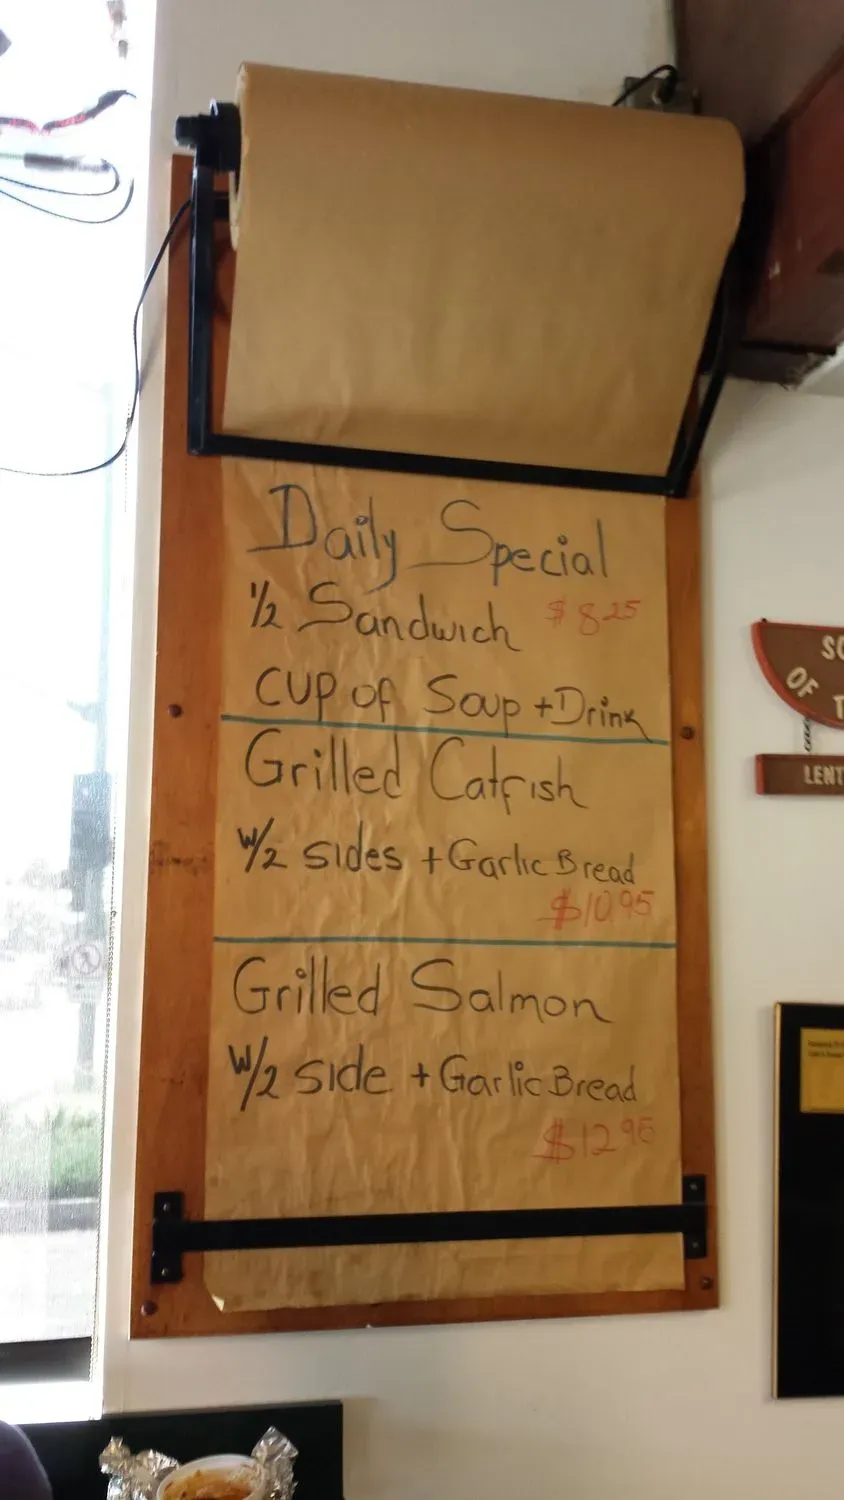 Daily Special
1/2 Sandwich $8.25
CUP of Soup + Drink
Grilled Catfish
W/2 sides + Garlic Bread
$10.95
Grilled Salmon
W/2 side + Garlic Bread
$12.95
OF
LENT